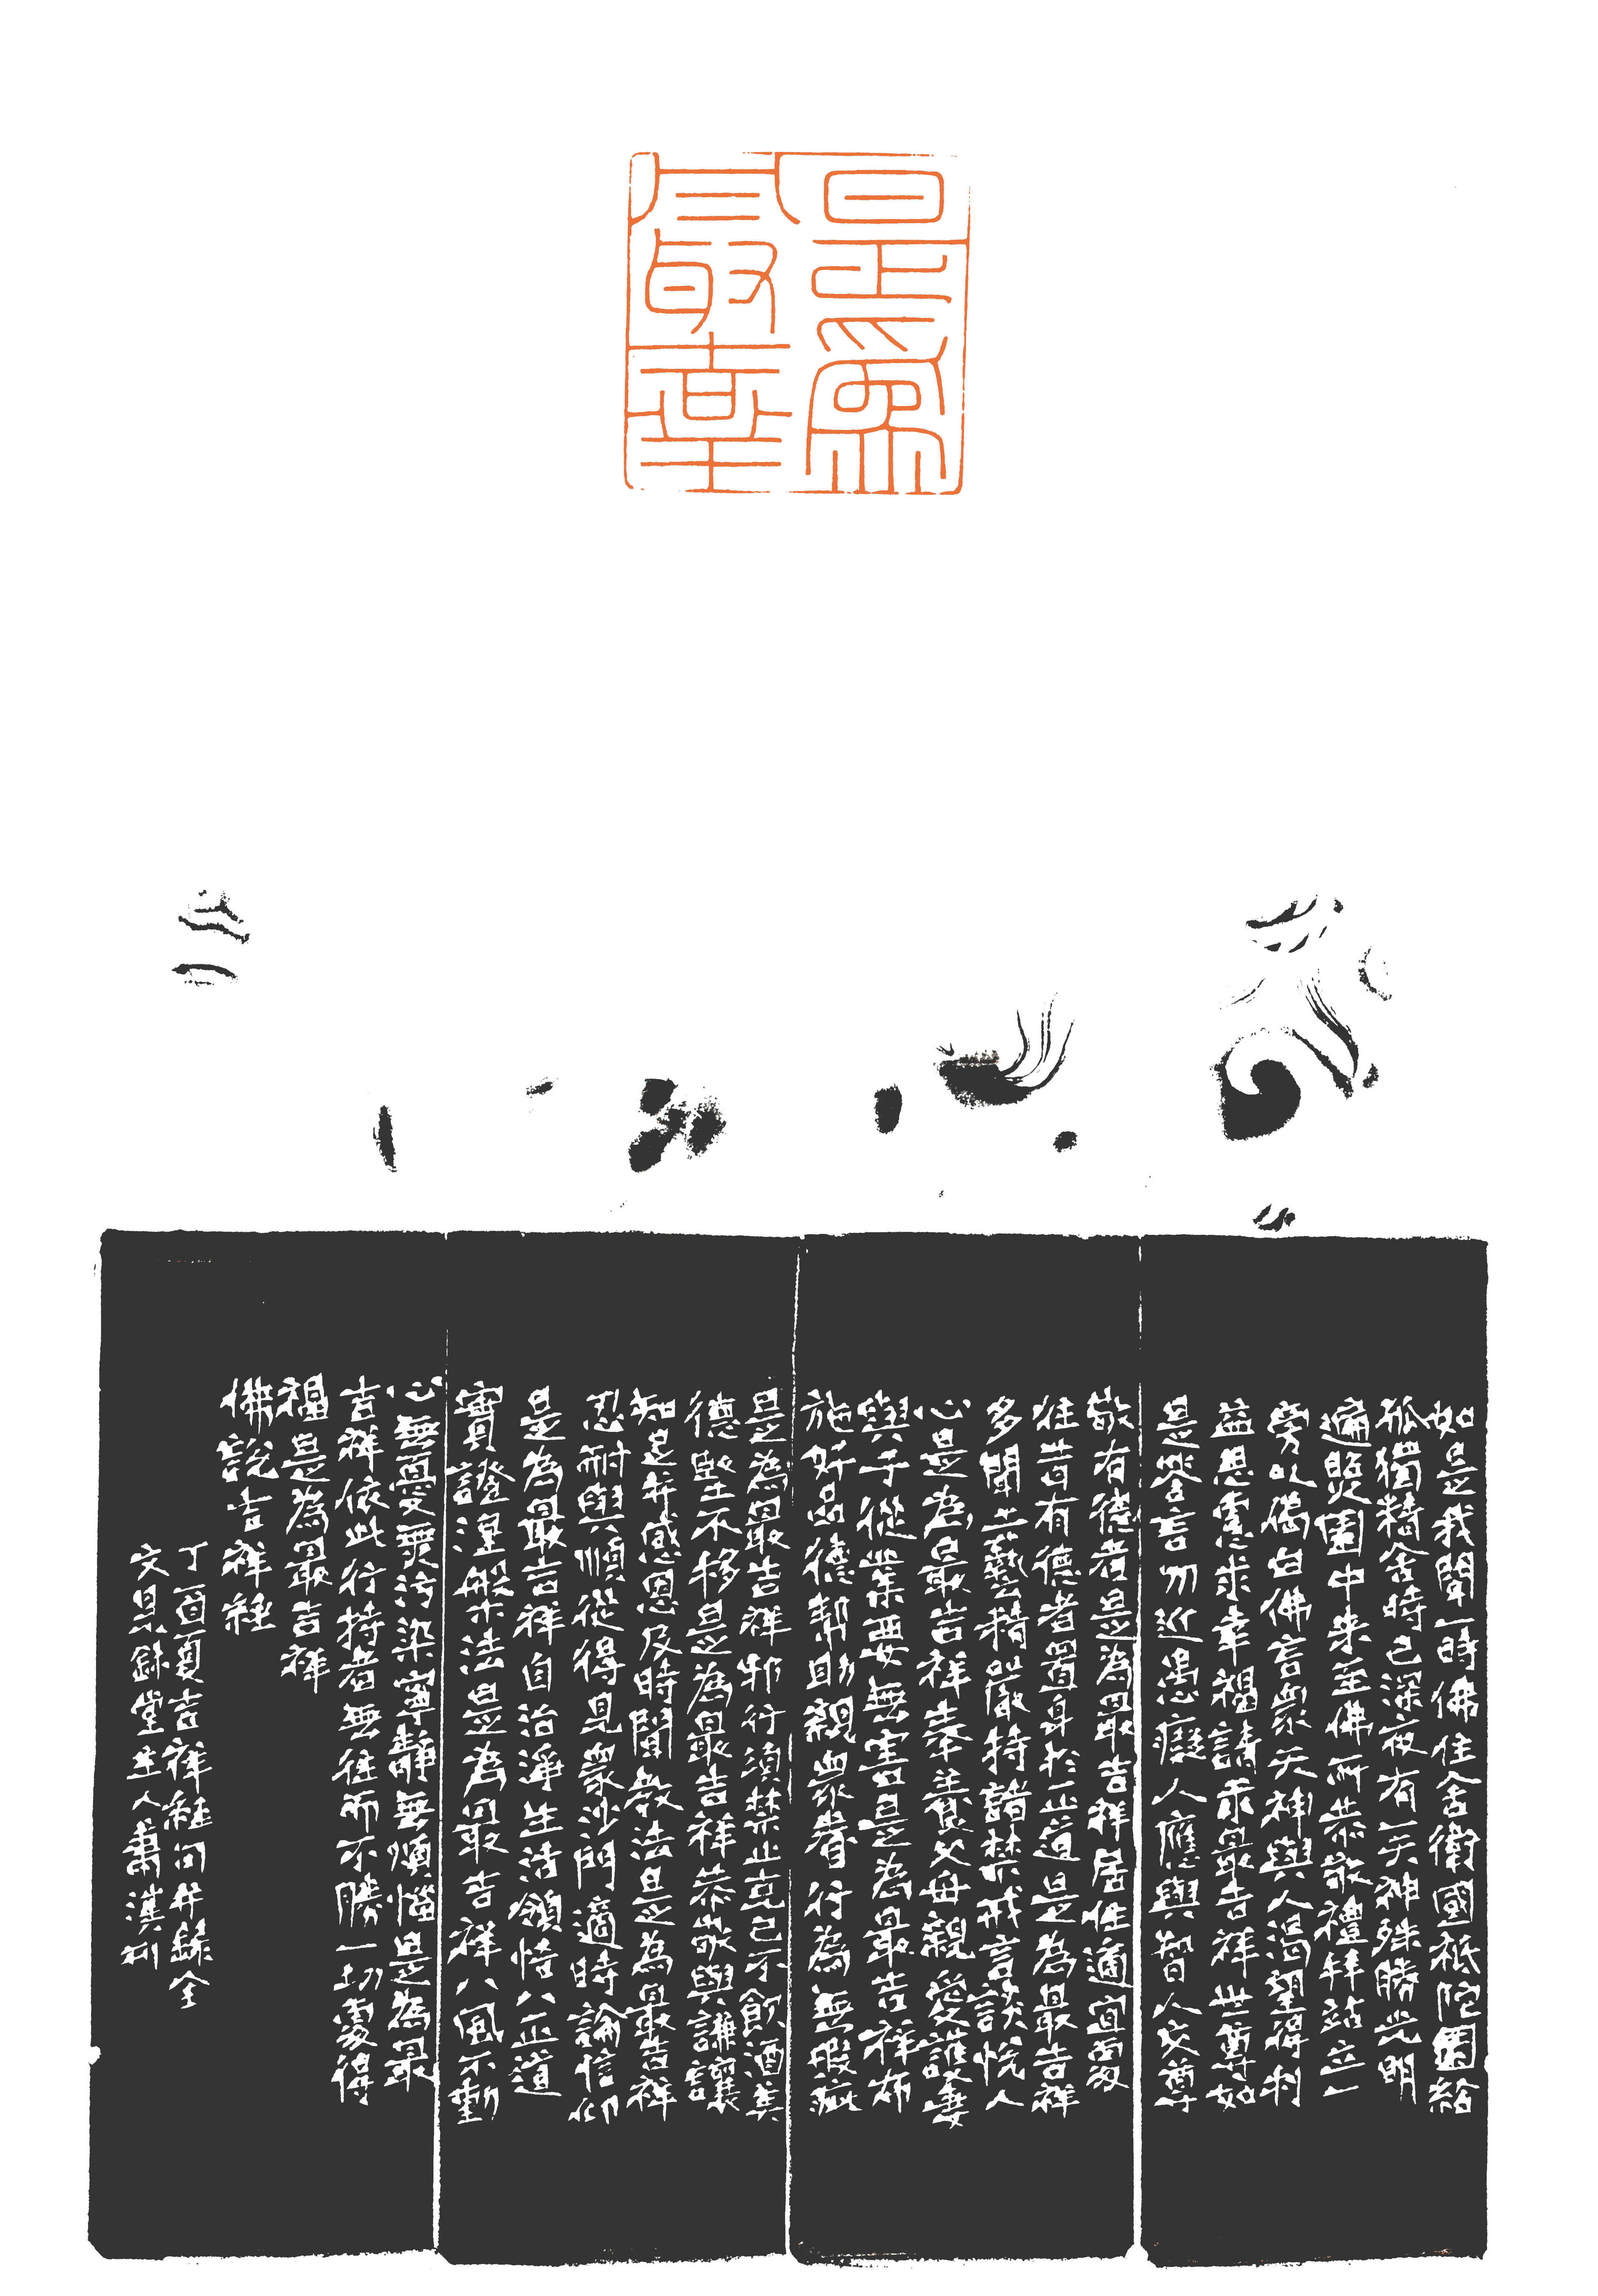 是為
最吉
如是我聞一時佛住舍衛國祇陀園給
孤獨精舍時已深夜有一天神殊勝光明
遍照園中來至佛所恭敬禮拜站立一
旁以偈白佛言眾天神與人渴望得利
益思慮求幸福請示最吉祥世尊如
是答言勿近愚癡人應與智人交尊
敬有德者是為最吉祥居住適宜處
往昔有德者置身於正道是為最吉祥
多聞工藝精嚴持諸禁戒言談悅人
心是為最吉祥奉養父母親愛護妻
與子從業要無害是為最吉祥布
施好品德幫助親眾眷行為無瑕疵
是為最吉祥邪行須禁止克己不飲酒美
德堅不移是為最吉祥恭敬與謙讓
知足并感恩及時聞教法是為最吉祥
忍耐與順從得見眾沙門適時論信仰
是為最吉祥自治淨生活領悟八正道
實證涅槃法是為最吉祥八風不動
心無憂無污染寧靜無煩惱是為最
吉祥依此行持者無往而不勝一切處得
福是為最吉祥
佛說吉祥經
丁酉夏吉祥經句并錄全
文是錄堂主人蕭漢